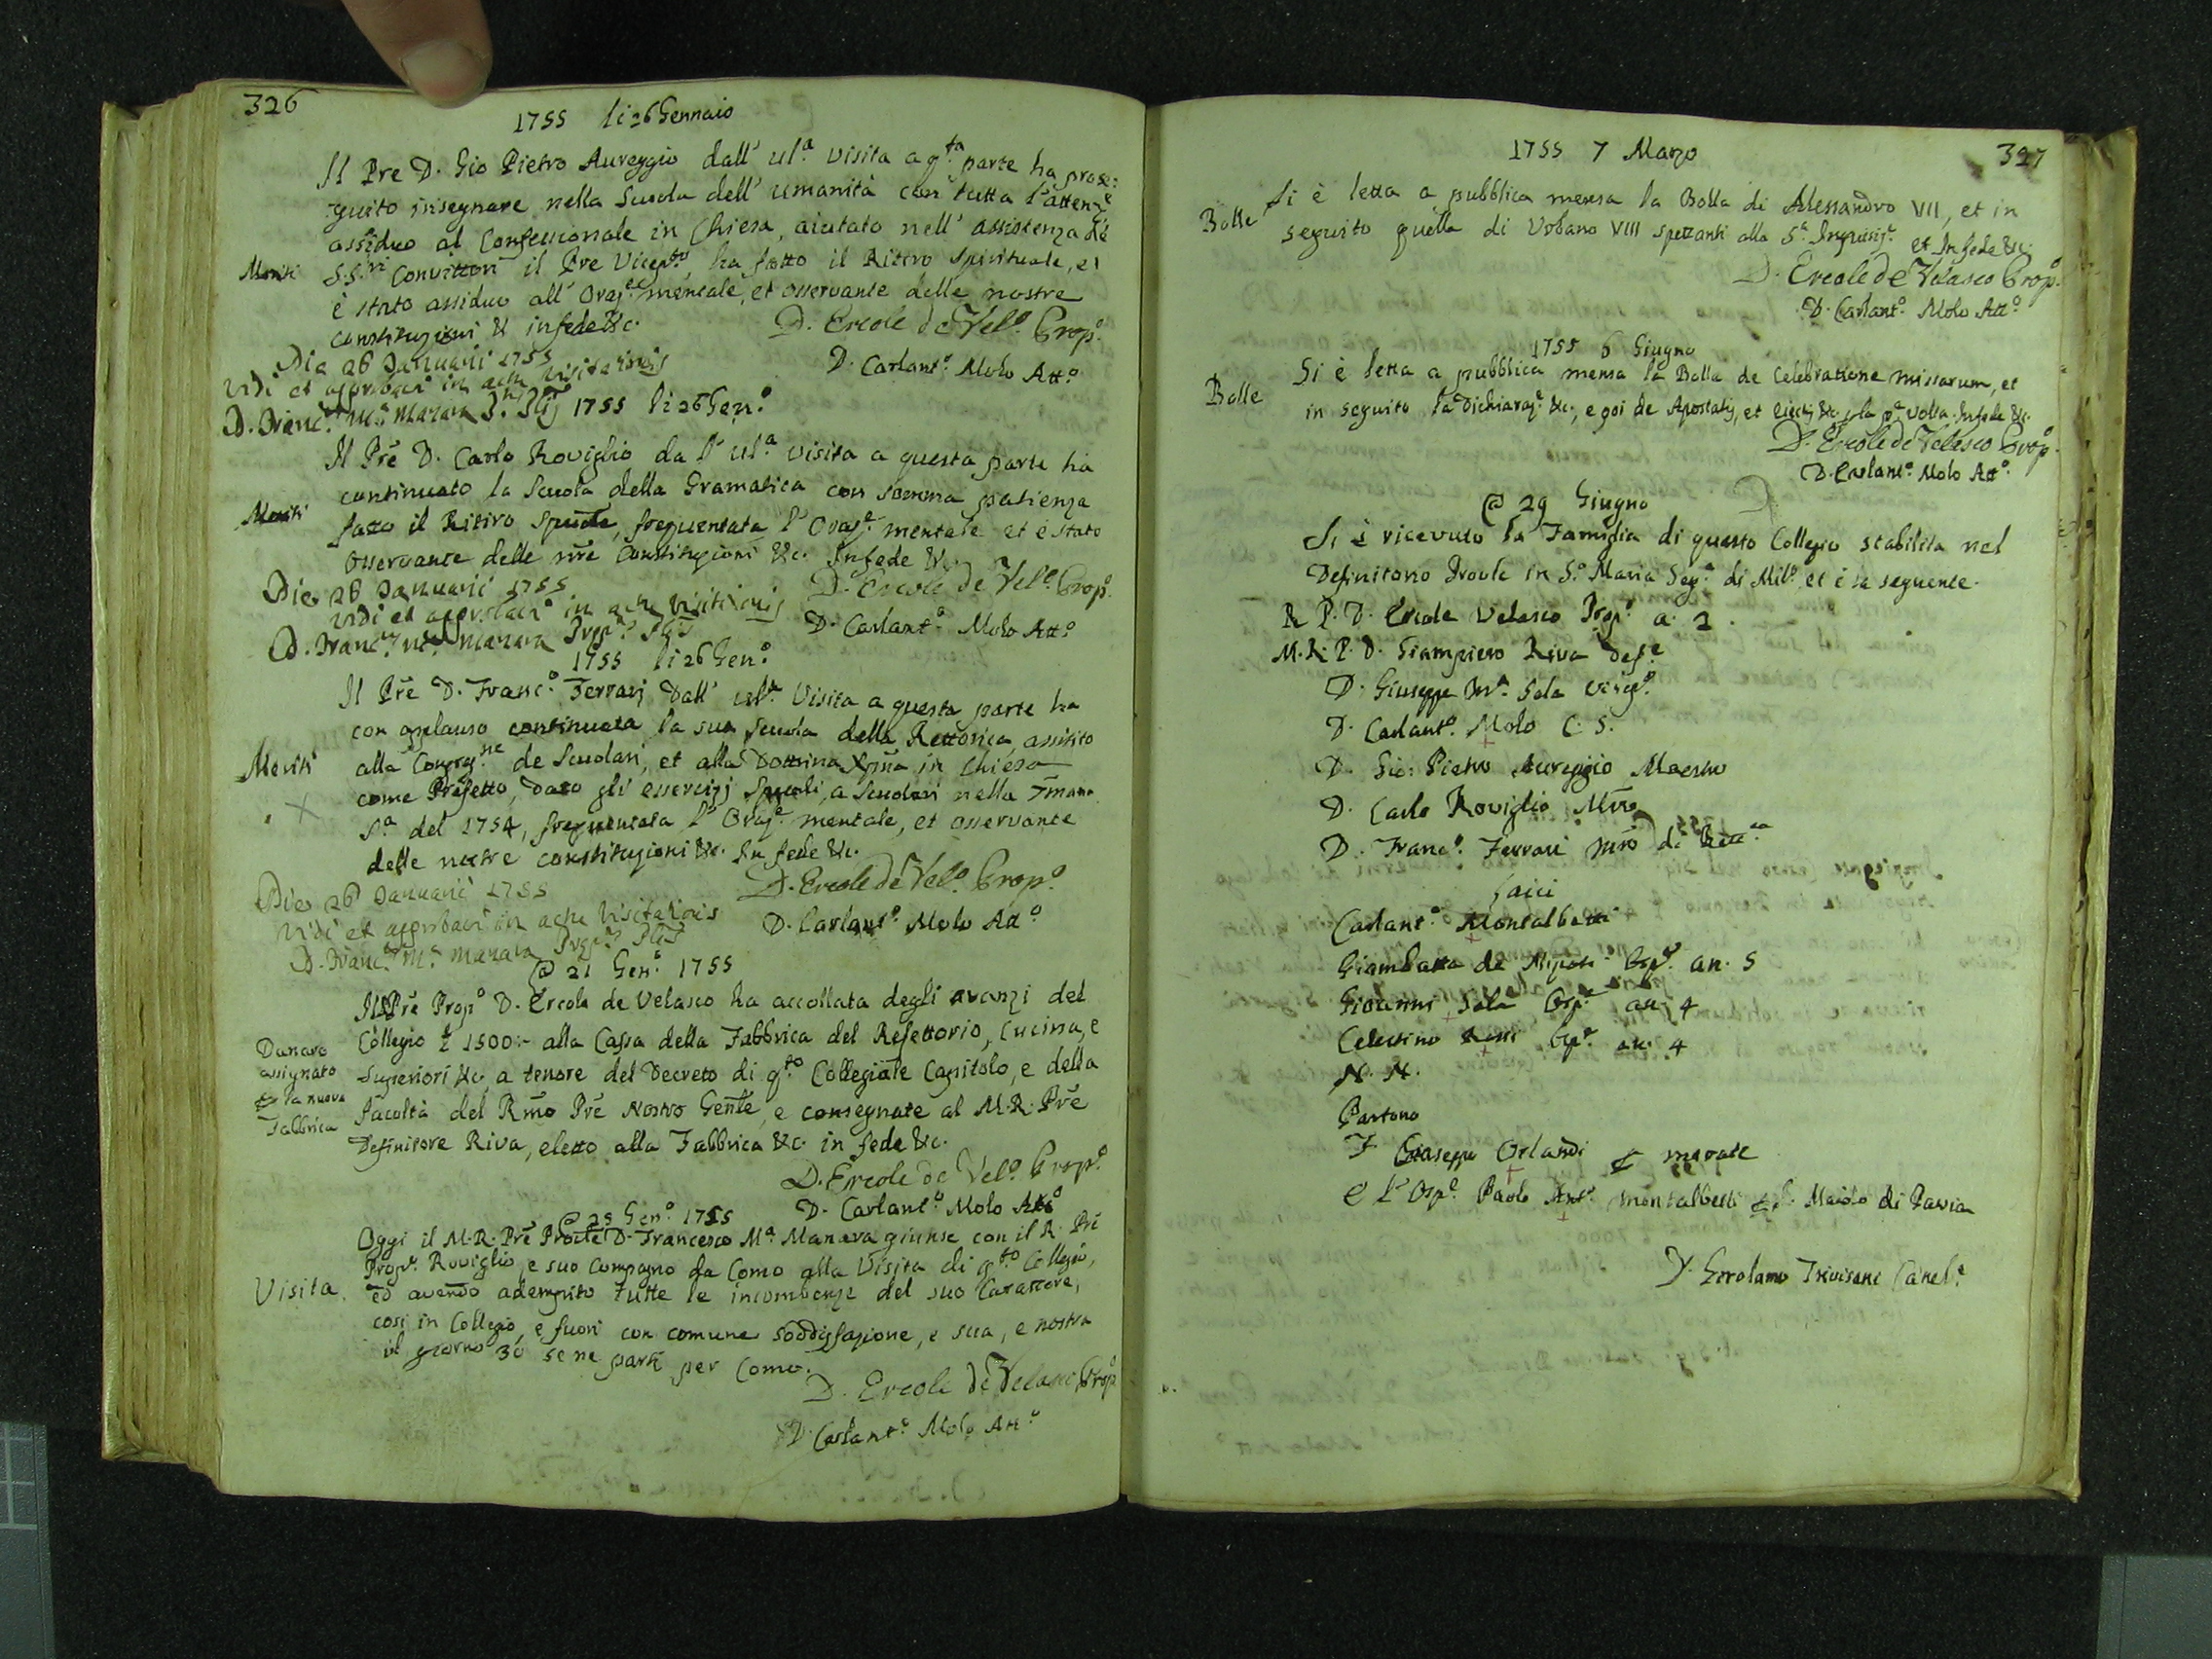 326
1755 li 26 Gennaio
Il Pre D. Gio Pietro Aureggio dall' ul.a visita a q.ta parte ha prose:
guito insegnare nella Scuola dell' umanità con tutta l'attenz.e
assiduo al Confessionale in Chiesa, aiutato nell' assistenza de
Meriti
S.S.ri Convittori il Pre Vicep.to, ha fatto il Ritiro Spirituale, et
è stato assiduo all' Oraz.e mentale, et osservante delle nostre
constituzioni &c infede &c.
D. Ercole de Vel.o Prop.o
D. Carlant.o Molo Att.o
Die 26 Januarii 1755
vidi et approbavi in actu visitationis
D. Franc.s M.a Manara
1755 li 26 Gen.o
Il Prē D. Carlo Roviglio da l' ul.a visita a questa parte ha
continuato la Scuola della Gramatica con somma patienza
Meriti
fatto il Ritiro Sp̄uale, frequentata l' Oraz.e mentale et è stato
osservante delle nr̄e Constituzioni &c. Infede &c.
D. Ercole de Vel.o Prop.o
D. Carlant.o Molo Att.o
Die 26 Januarii 1755
vidi et approbavi in actu visitationis
D. Franc.s M.a Manara Prep.s
1755 li 26 Gen.o
Il Prē D. Franc.o Ferrari Dall' ul.a Visita a questa parte ha
con applauso continuata la sua Scuola della Rettorica, assistito
Meriti
alla Congreg.ne de Scuolari, et alla Dottrina Xr̄na in Chiesa
come Prefetto, dato gli essercizj Sp̄uali, a Scuolari nella 7mana
S.a del 1754, frequentata l' Oraz.e mentale, et osservante
delle nostre constituzioni &c. In fede &c.
D. Ercole de Vel.o Prop.o
D. Carlant.o Molo Att.o
Die 26 Januarii 1755
vidi et approbavi in actu visitationis
D. Franc.s M.a Manara Prep.s
@ 21 Gen.o 1755
Il Prē Prop.o D. Ercole de Velasco ha accollata degli avanzi del
Collegio £ 1500:- alla Cassa della Fabbrica del Refettorio, Cucina, e
Danaro
assignato
per la nuova
Fabbrica
Superiori &c. a tenore del Decreto di q.to Collegiale Capitolo, e della
facoltà del Rm̄o Prē Nostro Gen̄le, e consegnate al M.R. Prē
Definitore Riva, eletto alla Fabbrica &c. in fede &c.
D. Ercole de Vel.o Prop.o
D. Carlant.o Molo Att.o
@ 25 Gen.o 1755
Oggi il M.R. Prē Pro̅le D. Francesco M.a Manara giunse con il R. Prē
Prop.o Roviglio, e suo Compagno da Como alla Visita di q.to Collegio,
Visita.
ed avendo adempito tutte le incombenze del suo Carattere,
così in Collegio, e fuori con comune soddisfazione, e sua, e nostra
il giorno 30 se ne partì per Como.
D. Ercole de Velasco Prop.o
D. Carlant.o Molo Att.o
1755 7 Marzo
327
Si è letta a pubblica mensa la Bolla di Alessandro VII, et in
Bolle
seguito quella di Urbano VIII spettanti alla S.a Inquisiz.e et In fede &c.
D. Ercole de Velasco Prop.o
D. Carlant.o Molo Att.o
1755 6 Giugno
Si è letta a pubblica mensa la Bolla de Celebratione missarum, et
Bolle
in seguito la Dichiaraz.e &c., e poi de Apostatis, et Eiectis &c. p la p.a volta. Infede &c.
D. Ercole de Velasco Prop.o
D. Carlant.o Molo Att.o
@ 29 Giugno
Si è ricevuto la Famiglia di questo Collegio stabilita nel
Definitorio Pro̅le in S.a Maria Seg.a di Mil.o et è la seguente.
R. P. D. Ercole Velasco Prop.o a. 2.
M.R.P.D. Giampiero Riva def.e
D. Giuseppe M.a Sala Vicep.o
D. Carlant.o Molo C. S.
D. Gio: Pietro Aureggio Maestro
D. Carlo Roviglio M̄ro
D. Franc.o Ferrari M̄ro di Rett.ca
Laici
Carlant.o Montalbetti
Giambatta de Osp.e an. 5
Giovanni Sala Osp.e an. 4
Celestino Rossi Osp.e an. 4
N. N.
Partono
F. Giuseppe Orlandi p merate
e l' Osp.e Paolo Ant.o Montalbetti p S. Maiolo di Pavia
D. Girolamo Trivisani Canel.e